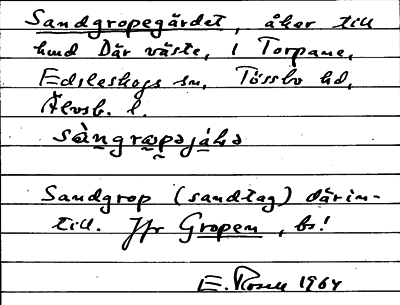 Sandgropegärdet, åker till
hmd Där väste, i Torpane,
Edsleskogs sn, Tössbo hd,
Älvsb. l.
sàngrɷpəjáḷə
Sandgrop (sandtag) därin-
till. Jfr Gropen, bs!
E. Rosell 1964